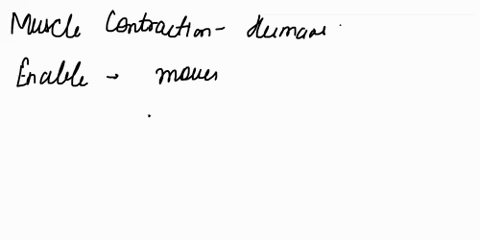 Muscle Contraction - Human
Enable → moves